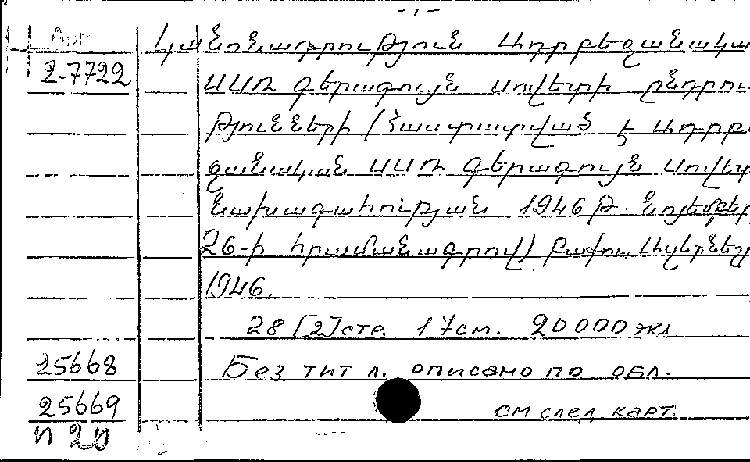 - 1 -
Арм
2-7722
Կանոնադրություն Ադրբեջանակա
ՍՍՌ գերագույն սովետի ընդրու
թյունների (հաստատված է Ադրբե
ջանական ՍՍՌ գերագույն սովետ
նախագահության 1946 թ. նոյեմբեր
26-ի հրամանագրով) Բաքու,
1946.
28 [2] стр. 17 см. 20000 экз
25668
Без тит л. описано по обл.
25669
см след. карт.
п 2п